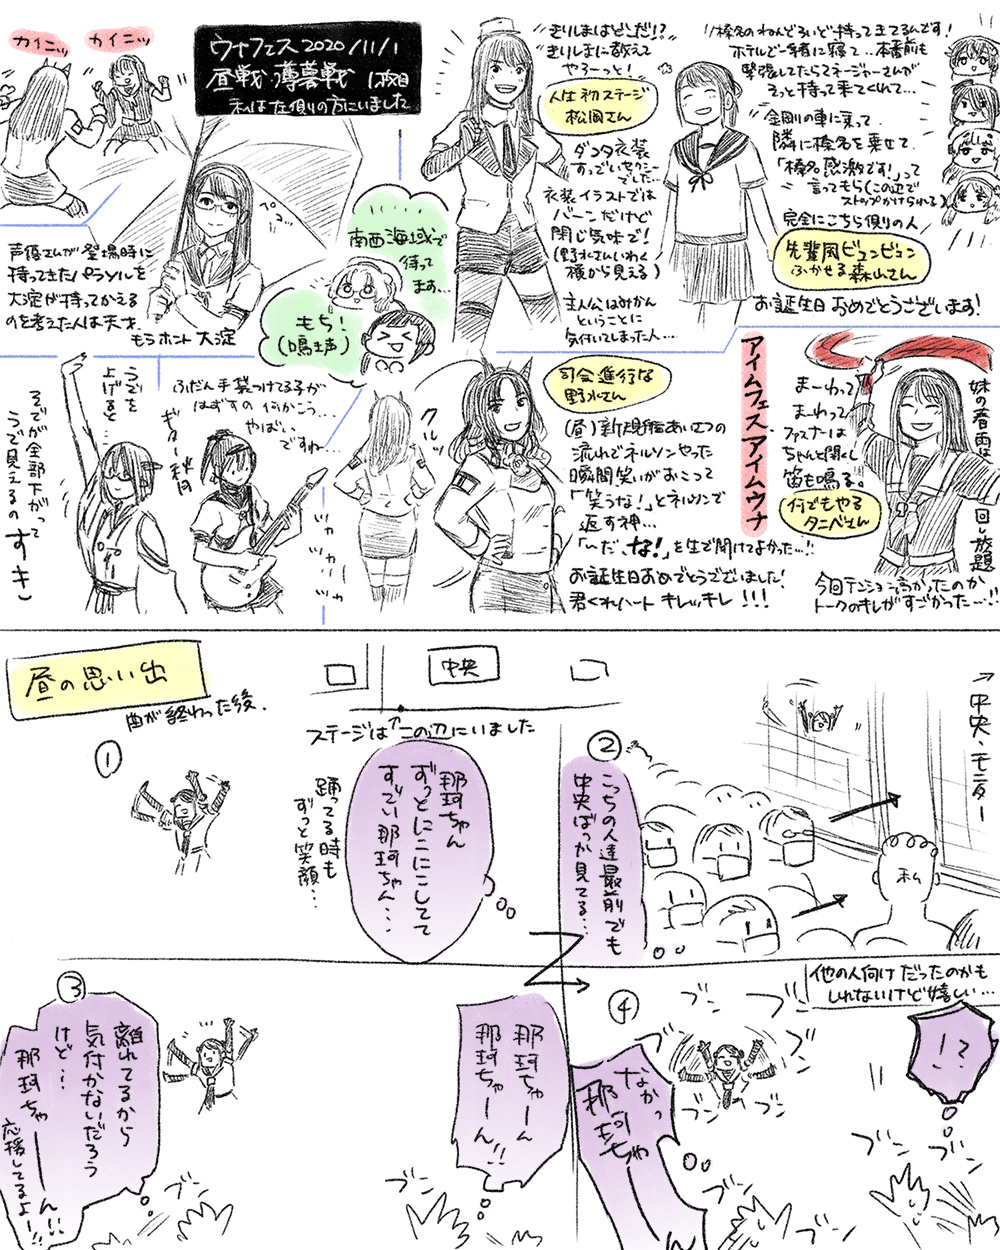 カイニッ
カイニッ
ウナフェス2020/11/1
昼戦 薄暮戦 1枚目
私は左側の方にいました
声優さんが登場時に
持ってきたパラソルを
大淀が持ってかえる
のを考えた人は天才。
もうホント大淀
南西海域で
待って
ます…
もち!
(鳴き声)
きりしまはどこだ!?
きりしまに教えて
やろーっと!
人生初ステージ
松岡さん
ダンタ衣装
すっごいセクシー
でした…
衣装イラストでは
バーンだけど
閉じ気味で!
(野水さんいわく
横から見える)
主人公はみかん
ということに
気付いてしまった人…
ホテルで一緒に寝て…本番前も
緊張してたらマネージャーさんが
そっと持って来てくれて…
金剛の車に乗って
隣に榛名を乗せて
「榛名感激です!」って
言ってもらく(この辺で
ストップかけられる)
完全にこちら側の人
先輩風ビュンビュン
ふかせる森山さん
お誕生日おめでとうございます!
うでを
上げると…
そでが全部下がって
うで見えるの
すき
ふだん手袋つけてる子が
はずすの何かこう…
やばい
ですね…
ギター秋月
クルッ
司会進行な
野水さん
(昼)新規艦あいさつの
流れでネルソンやった
瞬間笑いがおこって
「笑うな!」とネルソンで
返す神…
「〜だ、な!」を生で聞けてよかった…!!
お誕生日おめでとうございました!
君くれハート キレッキレ!!!
アイムフェス アイムウナ
妹の春雨は
回し放題
まーわって
まーわって
ファスナーは
ちゃんと開くし
笛も鳴る。
何でもやる
タニベさん
今回テンション高かったのか
トークのキレがすごかった…!!
昼の思い出
曲が終わった後。
中央
ステージは↑この辺にいました
①
那珂ちゃん
ずっとにこにこしてて
すごい那珂ちゃん…
踊ってる時も
ずっと笑顔…
②
こっちの人達最前でも
中央ばっか見てる…
→中央、モニター
私
③
離れてるから
気付かないだろう
けど…
那珂ちゃーーん!!
応援してるよ!!
那珂ちゃーん
那珂ちゃーん!!
ブン
ブン
④
他の人向けだったのかも
しれないけど嬉しい…
!?
なかっ
那珂ちゃ——
ブン
ブン
ブン
ブン
ブン
ブン
ブン